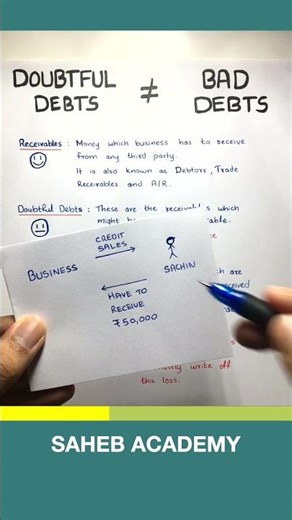 DOUBTFUL DEBTS ≠ BAD DEBTS
Receivables : Money which business has to receive
from any third party.
It is also known as Debtors, Trade
Receivables and A/R.
Doubtful Debts : These are the receivables which
might
BUSINESS
CREDIT
SALES
SACHIN
HAVE TO
RECEIVE
₹50,000
write off
this loss.
SAHEB ACADEMY